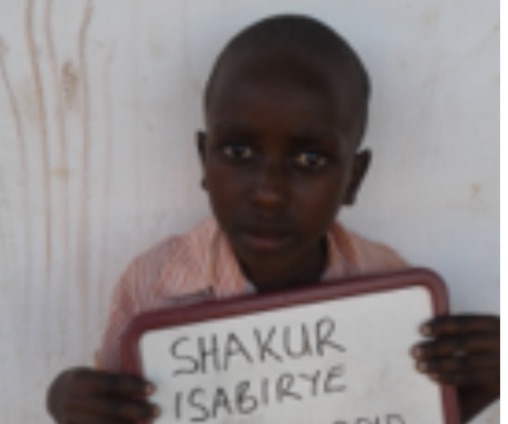 SHAKUR
ISABIRYE